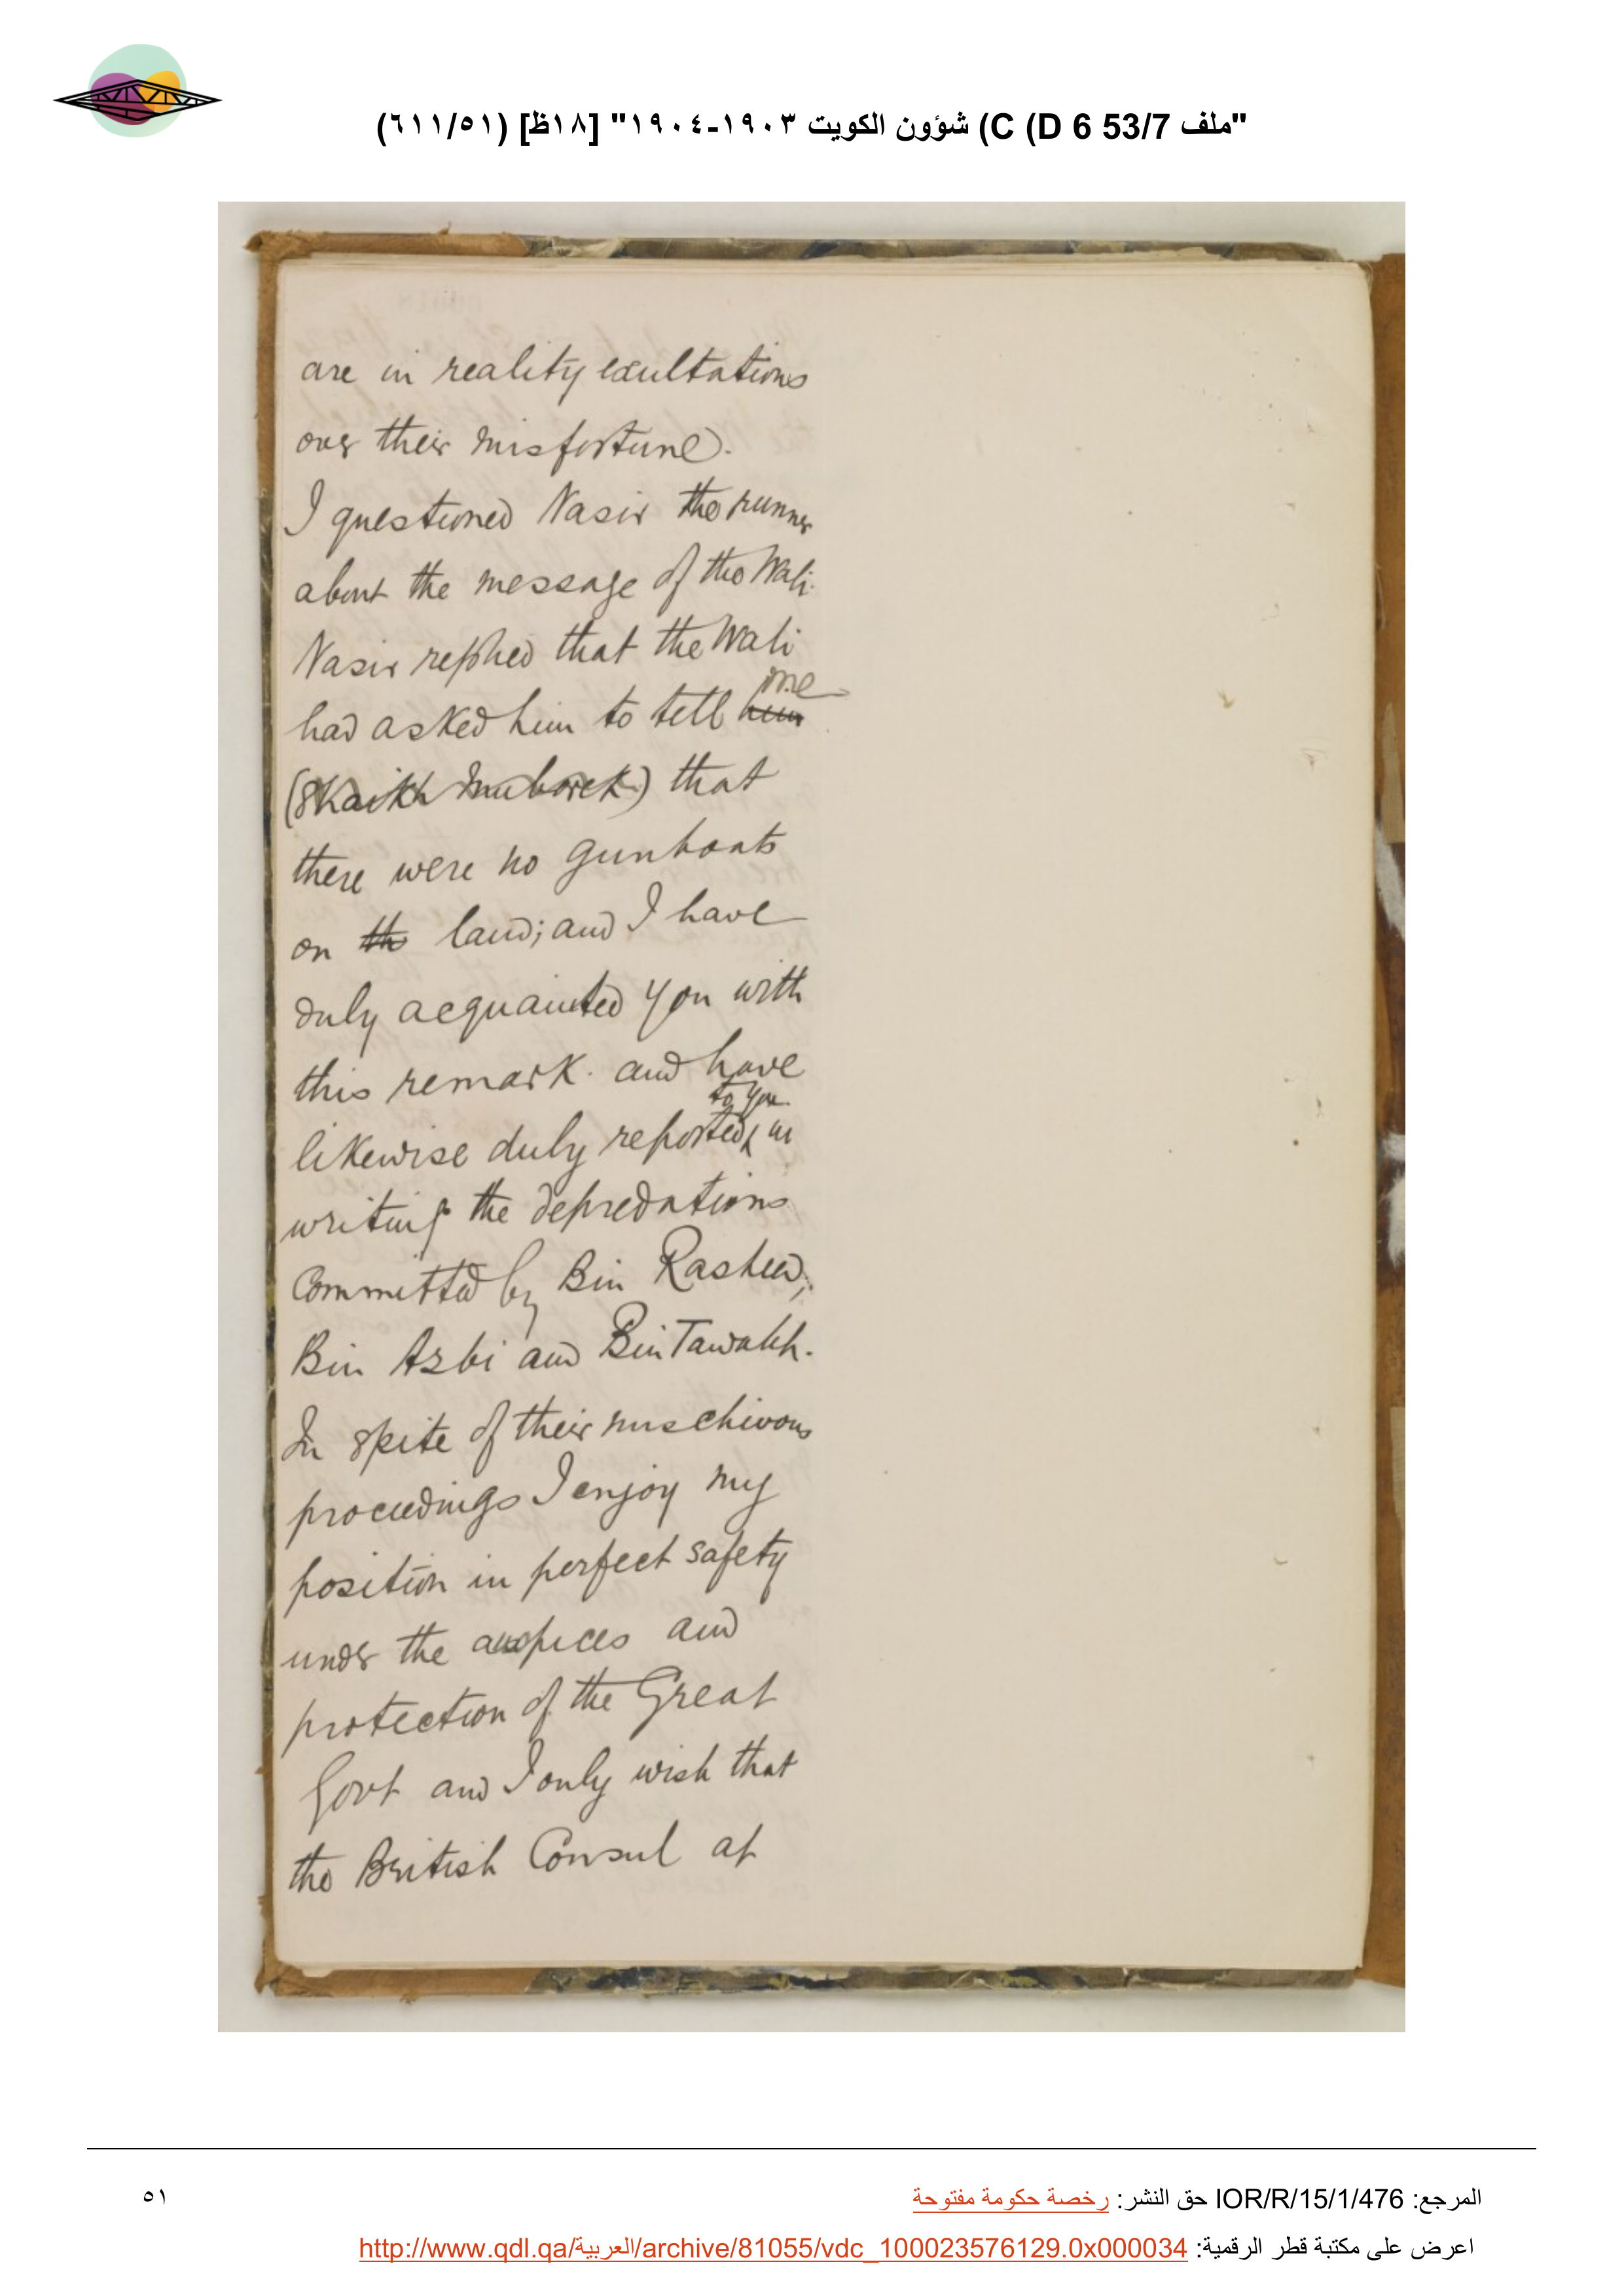 "ملف 53/7 C (D 6) شؤون الكويت ١٩٠٣-١٩٠٤" [١٨ظ] (٦١١/٥١)
are in reality exultations
over their misfortune.
I questioned Nasir the runner
about the message of the Wali.
Nasir replied that the Wali
me
had asked him to tell him
(Shaikh Mubarek) that
there were no gunboats
on th land; and I have
duly acquainted you with
this remark. and have
to you
likewise duly reported in
writing the depredations
Committed by Bin Rasheed,
Bin Asbi and Bin
In spite of their mischivous
proceedings I enjoy my
position in perfect safety
under the auspices and
protection of the Great
Govt and I only wish that
the British Consul at
المرجع: IOR/R/15/1/476 حق النشر: رخصة حكومة مفتوحة
٥١
اعرض على مكتبة قطر الرقمية: http://www.qdl.qa/العربية/archive/81055/vdc_100023576129.0x000034